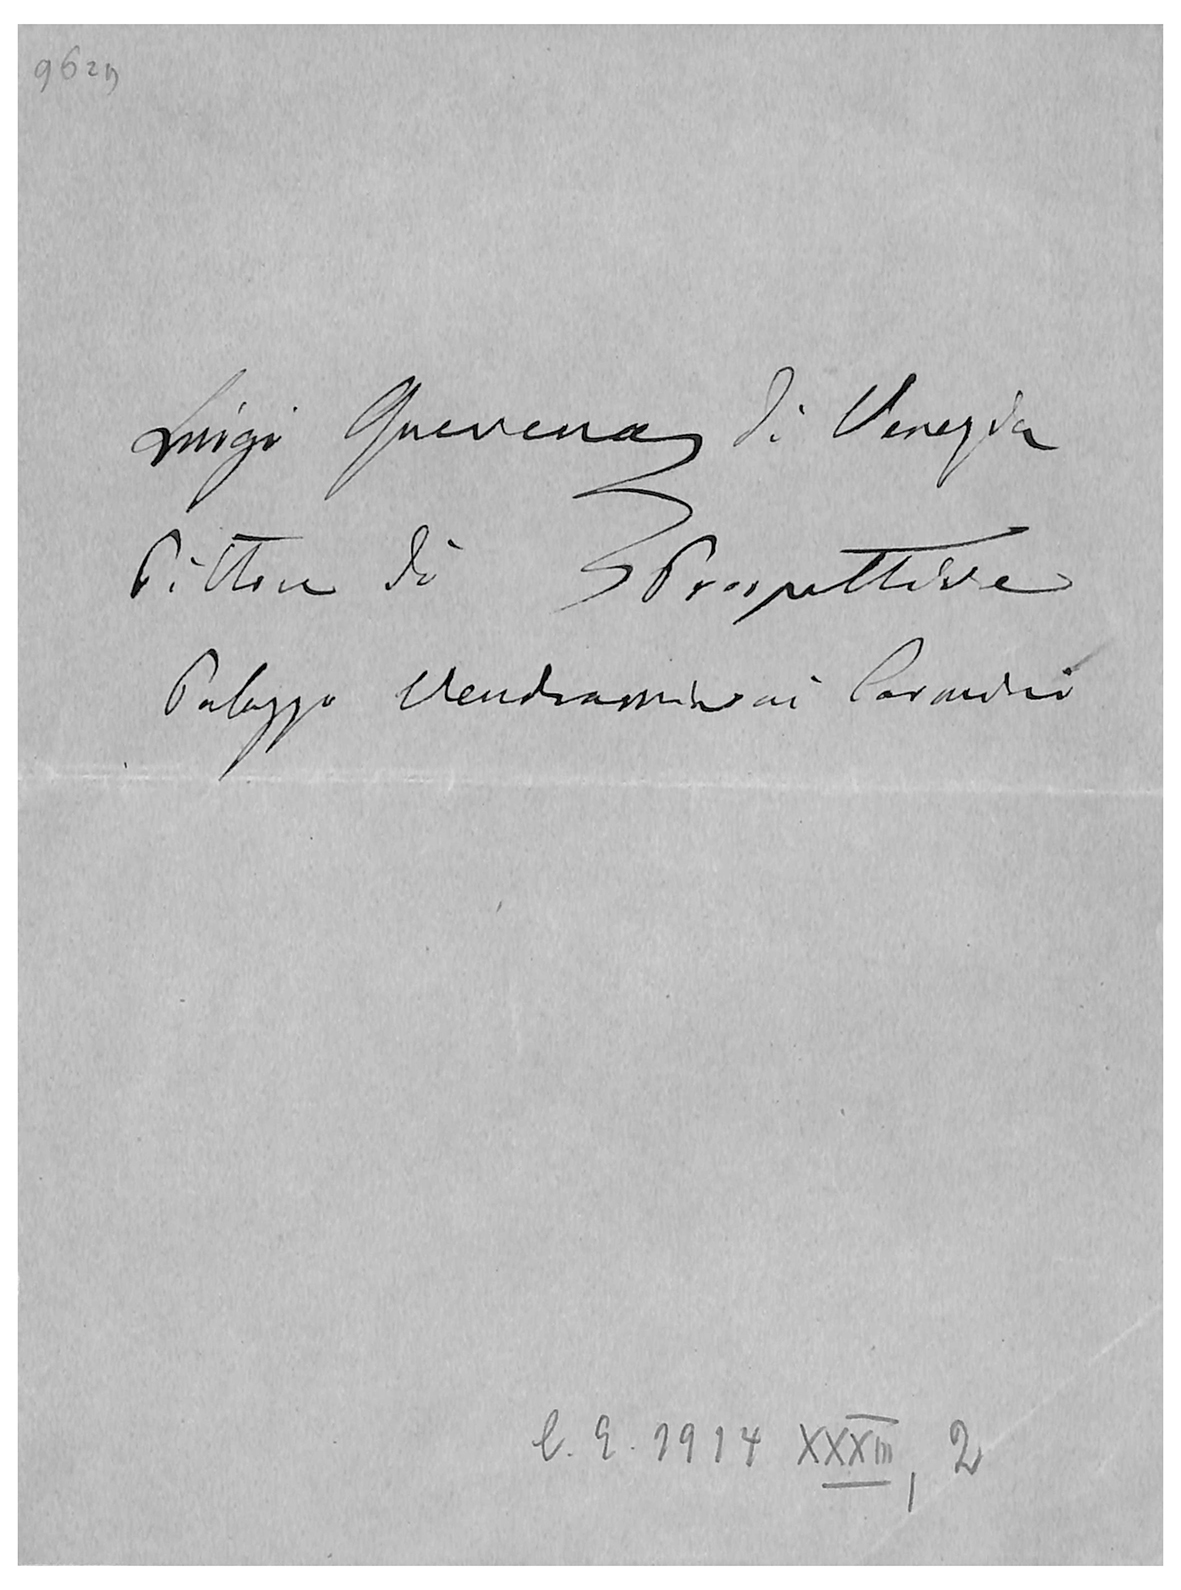 Luigi Querena di Venezia
Pittore di Prospettive
Palazzo Vendramin ai Carmini
1914 XXXIII, 2